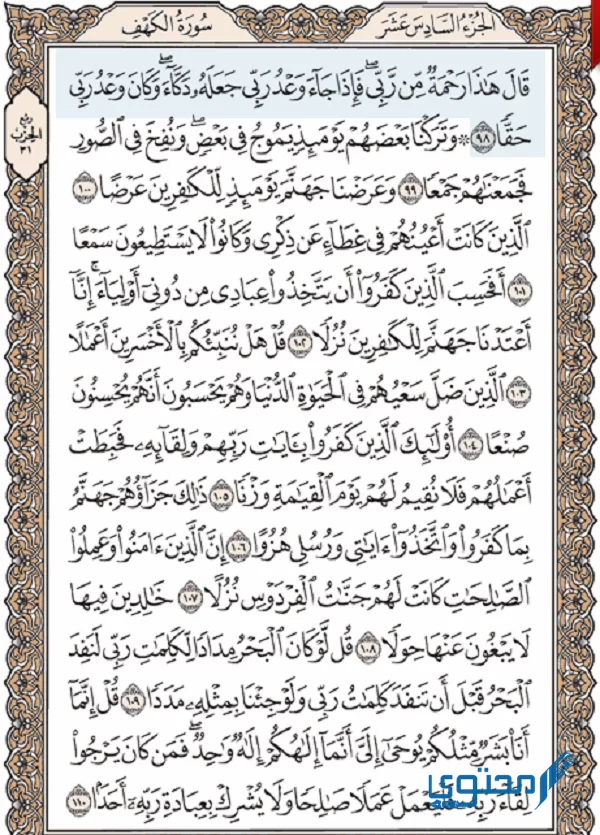 الجزء السادس عشر
سورة الكهف
قَالَ هَٰذَا رَحْمَةٌ مِّن رَّبِّي ۖ فَإِذَا جَآءَ وَعْدُ رَبِّي جَعَلَهُۥ دَكَّآءَ ۖ وَكَانَ وَعْدُ رَبِّي
حَقًّا ٩٨ ۞ وَتَرَكْنَا بَعْضَهُمْ يَوْمَئِذٍ يَمُوجُ فِي بَعْضٍ ۖ وَنُفِخَ فِي ٱلصُّورِ
فَجَمَعْنَٰهُمْ جَمْعًا ٩٩ وَعَرَضْنَا جَهَنَّمَ يَوْمَئِذٍ لِّلْكَٰفِرِينَ عَرْضًا ١٠٠
ٱلَّذِينَ كَانَتْ أَعْيُنُهُمْ فِي غِطَآءٍ عَن ذِكْرِي وَكَانُوا۟ لَا يَسْتَطِيعُونَ سَمْعًا
١٠١ أَفَحَسِبَ ٱلَّذِينَ كَفَرُوٓا۟ أَن يَتَّخِذُوا۟ عِبَادِي مِن دُونِيٓ أَوْلِيَآءَ ۚ إِنَّآ
أَعْتَدْنَا جَهَنَّمَ لِلْكَٰفِرِينَ نُزُلًا ١٠٢ قُلْ هَلْ نُنَبِّئُكُم بِٱلْأَخْسَرِينَ أَعْمَٰلًا
١٠٣ ٱلَّذِينَ ضَلَّ سَعْيُهُمْ فِي ٱلْحَيَوٰةِ ٱلدُّنْيَا وَهُمْ يَحْسَبُونَ أَنَّهُمْ يُحْسِنُونَ
صُنْعًا ١٠٤ أُو۟لَٰٓئِكَ ٱلَّذِينَ كَفَرُوا۟ بِـَٔايَٰتِ رَبِّهِمْ وَلِقَآئِهِۦ فَحَبِطَتْ
أَعْمَٰلُهُمْ فَلَا نُقِيمُ لَهُمْ يَوْمَ ٱلْقِيَٰمَةِ وَزْنًا ١٠٥ ذَٰلِكَ جَزَآؤُهُمْ جَهَنَّمُ
بِمَا كَفَرُوا۟ وَٱتَّخَذُوٓا۟ ءَايَٰتِي وَرُسُلِي هُزُوًا ١٠٦ إِنَّ ٱلَّذِينَ ءَامَنُوا۟ وَعَمِلُوا۟
ٱلصَّٰلِحَٰتِ كَانَتْ لَهُمْ جَنَّٰتُ ٱلْفِرْدَوْسِ نُزُلًا ١٠٧ خَٰلِدِينَ فِيهَا
لَا يَبْغُونَ عَنْهَا حِوَلًا ١٠٨ قُل لَّوْ كَانَ ٱلْبَحْرُ مِدَادًا لِّكَلِمَٰتِ رَبِّي لَنَفِدَ
ٱلْبَحْرُ قَبْلَ أَن تَنفَدَ كَلِمَٰتُ رَبِّي وَلَوْ جِئْنَا بِمِثْلِهِۦ مَدَدًا ١٠٩ قُلْ إِنَّمَآ
أَنَا۠ بَشَرٌ مِّثْلُكُمْ يُوحَىٰٓ إِلَيَّ أَنَّمَآ إِلَٰهُكُمْ إِلَٰهٌ وَٰحِدٌ ۖ فَمَن كَانَ يَرْجُوا۟
لِقَآءَ رَبِّهِۦ فَلْيَعْمَلْ عَمَلًا صَٰلِحًا وَلَا يُشْرِكْ بِعِبَادَةِ رَبِّهِۦٓ أَحَدًۢا ١١٠
ربع
الحزب
٣١
محتوى